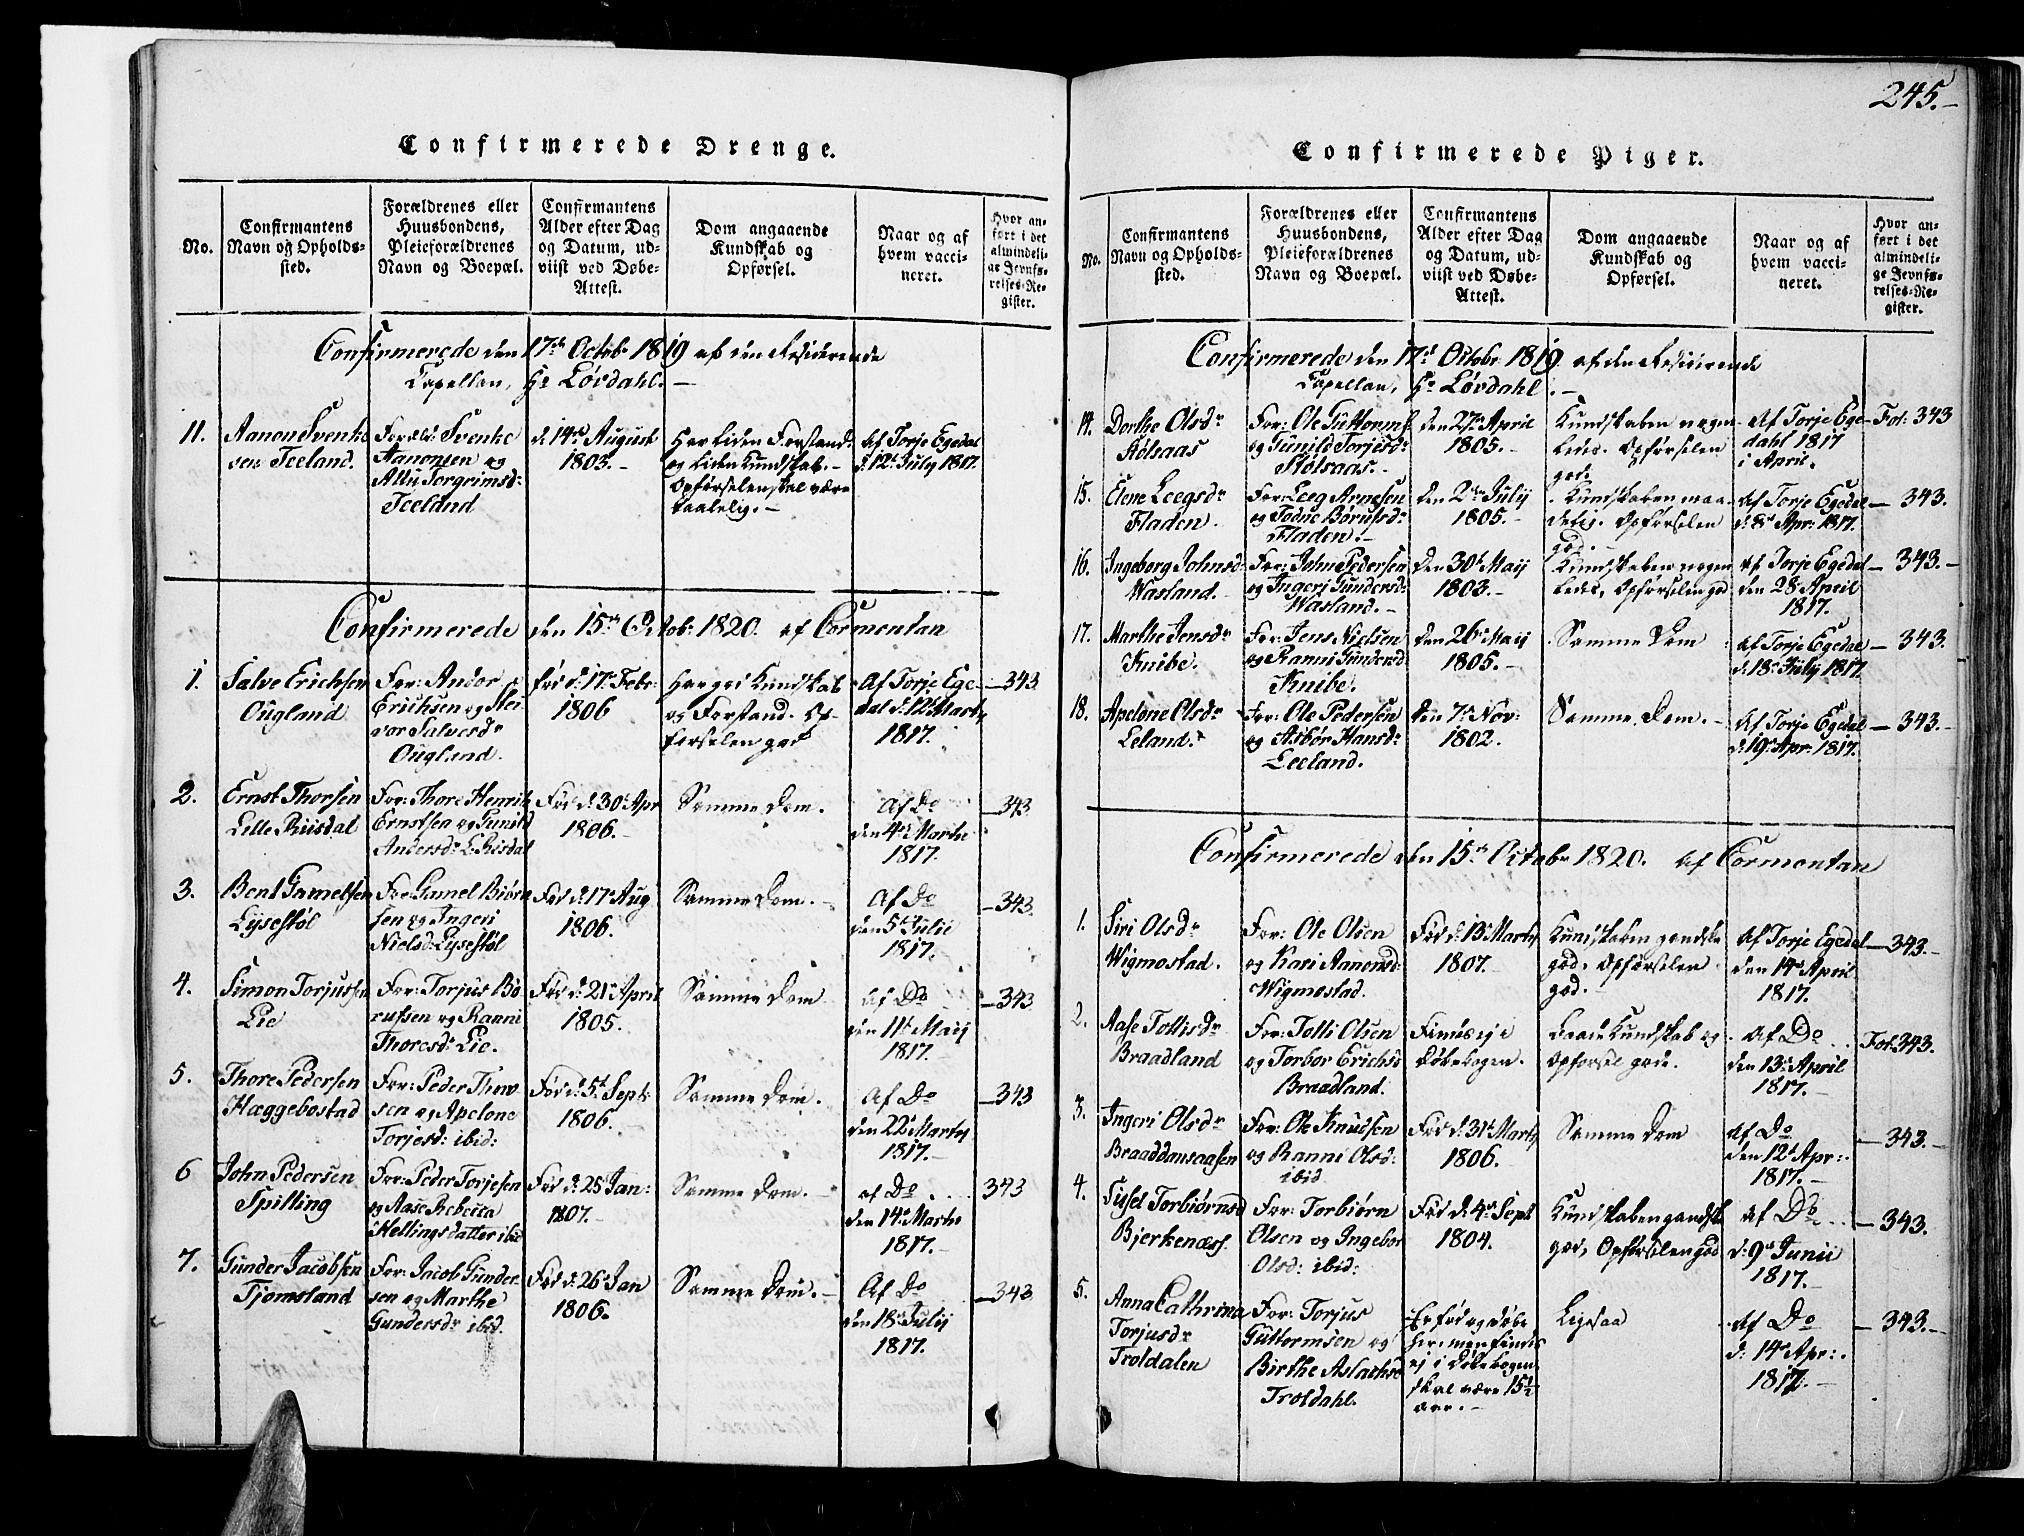 245.
Confirmerede Drenge.
No.
Confirmantens
Navn og Opholds-
sted.
Forældrenes eller
Huusbondens,
Pleieforældrenes
Navn og Boepæl.
Confirmantens
Alder efter Dag
og Datum, ud-
viist ved Døbe-
Attest.
Dom angaaende
Kundskab og
Opførsel.
Naar og af
hvem vacci-
neret.
Hvor an-
ført i det
almindeli-
ge Jevnfø-
relses-Re-
gister.
Confirmerede den 17de Octobr 1819 af den Residerende
Capellan, Hr Løvdahl. —
11.
Aanon Svenke
sen Iceland.
Foreld: Svenke
Aanonsen og
Torgrimsd:
Iceland
d. 14de August
1803. —
Har liden Forstand
og liden Kundskab. —
Opførselen skal være
taalelig. —
Af Torje Egedal
d. 12te July 1817.
Confirmerede den 15de Octob: 1820. af Cormontan
1.
Salve Erichsen
Ougland
For: Andor
Erichsen og Siri-
vor Salvesdr
Ougland.
fød d: 17de Febr:
1806
Har god Kundskab
og Forstand. Op-
førselen god
Af Torje Ege-
dal d: 12te Marty
1817.
— 343.
2.
Ernst Thorsen
Lille Riisdal
For: Thore Henrik
Ernstsen og Gunild
Andersdr L: Risdal
Fød d: 30te Apr
1806. —
Samme Dom.
Af Do
den 4de Marthe
1817. —
— 343
3.
Bent Gamelsen
Lysestøl
For: Gamel Biørn
sen og Ingeri
Nielsd: Lysestøl
Fød d: 17de Aug
1806.
Samme Dom. —
Af Do
den 5te Julie
1817. —
— 343.
4.
Simon Torjussen
Lie
For: Torjus Bo
rufsen og Ranni
Thoresd: Lie.
Fød d: 21de April
1805.
Samme Dom
Af Do
den 11te Maij
1817. —
— 343
5.
Thore Pedersen
Hæggebostad
For: Peder Thor
sen og Apelone
Torjesd: ibid:
Fød d: 5te Sept:
1806. —
Samme Dom.
Af Do
den 22de Marty
1817. —
— 343
6
John Pedersen
Spilling
For: Peder Torjesen
og Aase Rebecca
Hellingsdatter ibid
Fød d: 25de Jan:
1807. —
Samme Dom. —
af Do
den 14de Marthe
1817. —
343
7.
Gunder Jacobsen
Tjomsland
For: Jacob Gunder
sen og Marthe
Gundersdr ibid.
Fød d: 26de Jan
1806.
Samme Dom. —
Af Do
den 18de July
1817. —
— 343
Confirmerede Piger.
No.
Confirmantens
Navn og Opholds-
sted.
Forældrenes eller
Huusbondens,
Pleieforældrenes
Navn og Boepæl.
Confirmantens
Alder efter Dag
og Datum, ud-
viist ved Døbe-
Attest.
Dom angaaende
Kundskab og
Opførsel.
Naar og af
hvem vacci-
neret.
Hvor an-
ført i det
almindeli-
ge Jevnfø-
relses-Re-
gister.
Confirmerede den 17de Octobr 1819 af den Residerende
Capellan, Hr Løvdahl. —
14.
Dorthe Olsdr
Stølsaas
For: Ole Guttormf.
og Gunild Torjesdr
Stølsaas. —
Den 27de April
1805. —
Kundskaben nogen
ledes. Opførselen
god.
Af Torje Ege
dahl 1817
i April.
Fol: 343
15.
Elene Leegsdr
Fladen.
For: Leeg Arnesen
og Todne Børufsdr
Fladen. —
den 2den July
1805. —
Kundskaben maa-
delig. Opførselen
god. —
Af Torje Egedal
d. 8de Apr: 1817.
— 343.
16.
Ingeborg Johnsd
Wasland. —
For: John Pedersen
og Ingeri Gundersd:
Wasland. —
Den 30te Maij
1803. —
Kundskaben nogen
ledes, Opførselen god
Af Torje Egedal
den 28de April
1817.
— 343. —
17.
Marthe Jensdr
Knibe.
For: Jens Nielsen
og Ranni Gundersd:
Knibe.
Den 26de Maij
1805. —
Samme Dom
Af Torje Egedal
d: 18de July 1817
— 343.
18.
Apelone Olsdr
Leland.
For: Ole Pedersen
og Asbør Hansdr
Leeland.
Den 7de Nov:
1802.
Samme Dom. —
Af Torje Egedal
d: 19de Apr: 1817.
— 343. —
Confirmerede den 15de Octobr 1820. af Cormontan
1.
Siri Olsdr
Wigmostad.
For: Ole Olsen
og Kari Aanonsd:
Wigmostad.
Fød d: 13de Marty
1807. —
Kundskaben gandske
god, Opførselen
god.
Af Torje Egedal
den 14de April
1817.
— 343. —
2.
Aase Tollisdr
Braadland
For: Tolli Olsen
og Torbor Erichsd
Braadland.
Findes eje i
Døbebogen.
Baade Kundskab og
Opførsel gode.
Af Do
den 13de April
1817.
Fol: 343.
3.
Ingeri Olsdr
Braaddansaasen
For: Ole Knudsen
og Ranni Olsd:
ibid
Fød d: 31te Marty
1806. —
Samme Dom
Af Do
den 12te Apr:.
1817. —
— 343. —
4.
Sisel Torbiørnsd
Bjerkenæss.
For: Torbiørn
Olsen og Ingebor
Olsd: ibid:
Fød d: 4de Sept
1804.
Kundskaben gandske
god, Opførselen god
af Do
d: 9de Junii
1817. —
— 343.
5.
Anna Cathrina
Torjusdr
Troldalen
For: Torjus
Guttormsen og
Birthe Aslachsd
Troldahl.
Er fød og døbt
her, men findes
ej i Døbebogen,
skal være 15½
aar. —
Ligesaa
Af Do
d: 14de Apr:.
1817. —
— 343. —